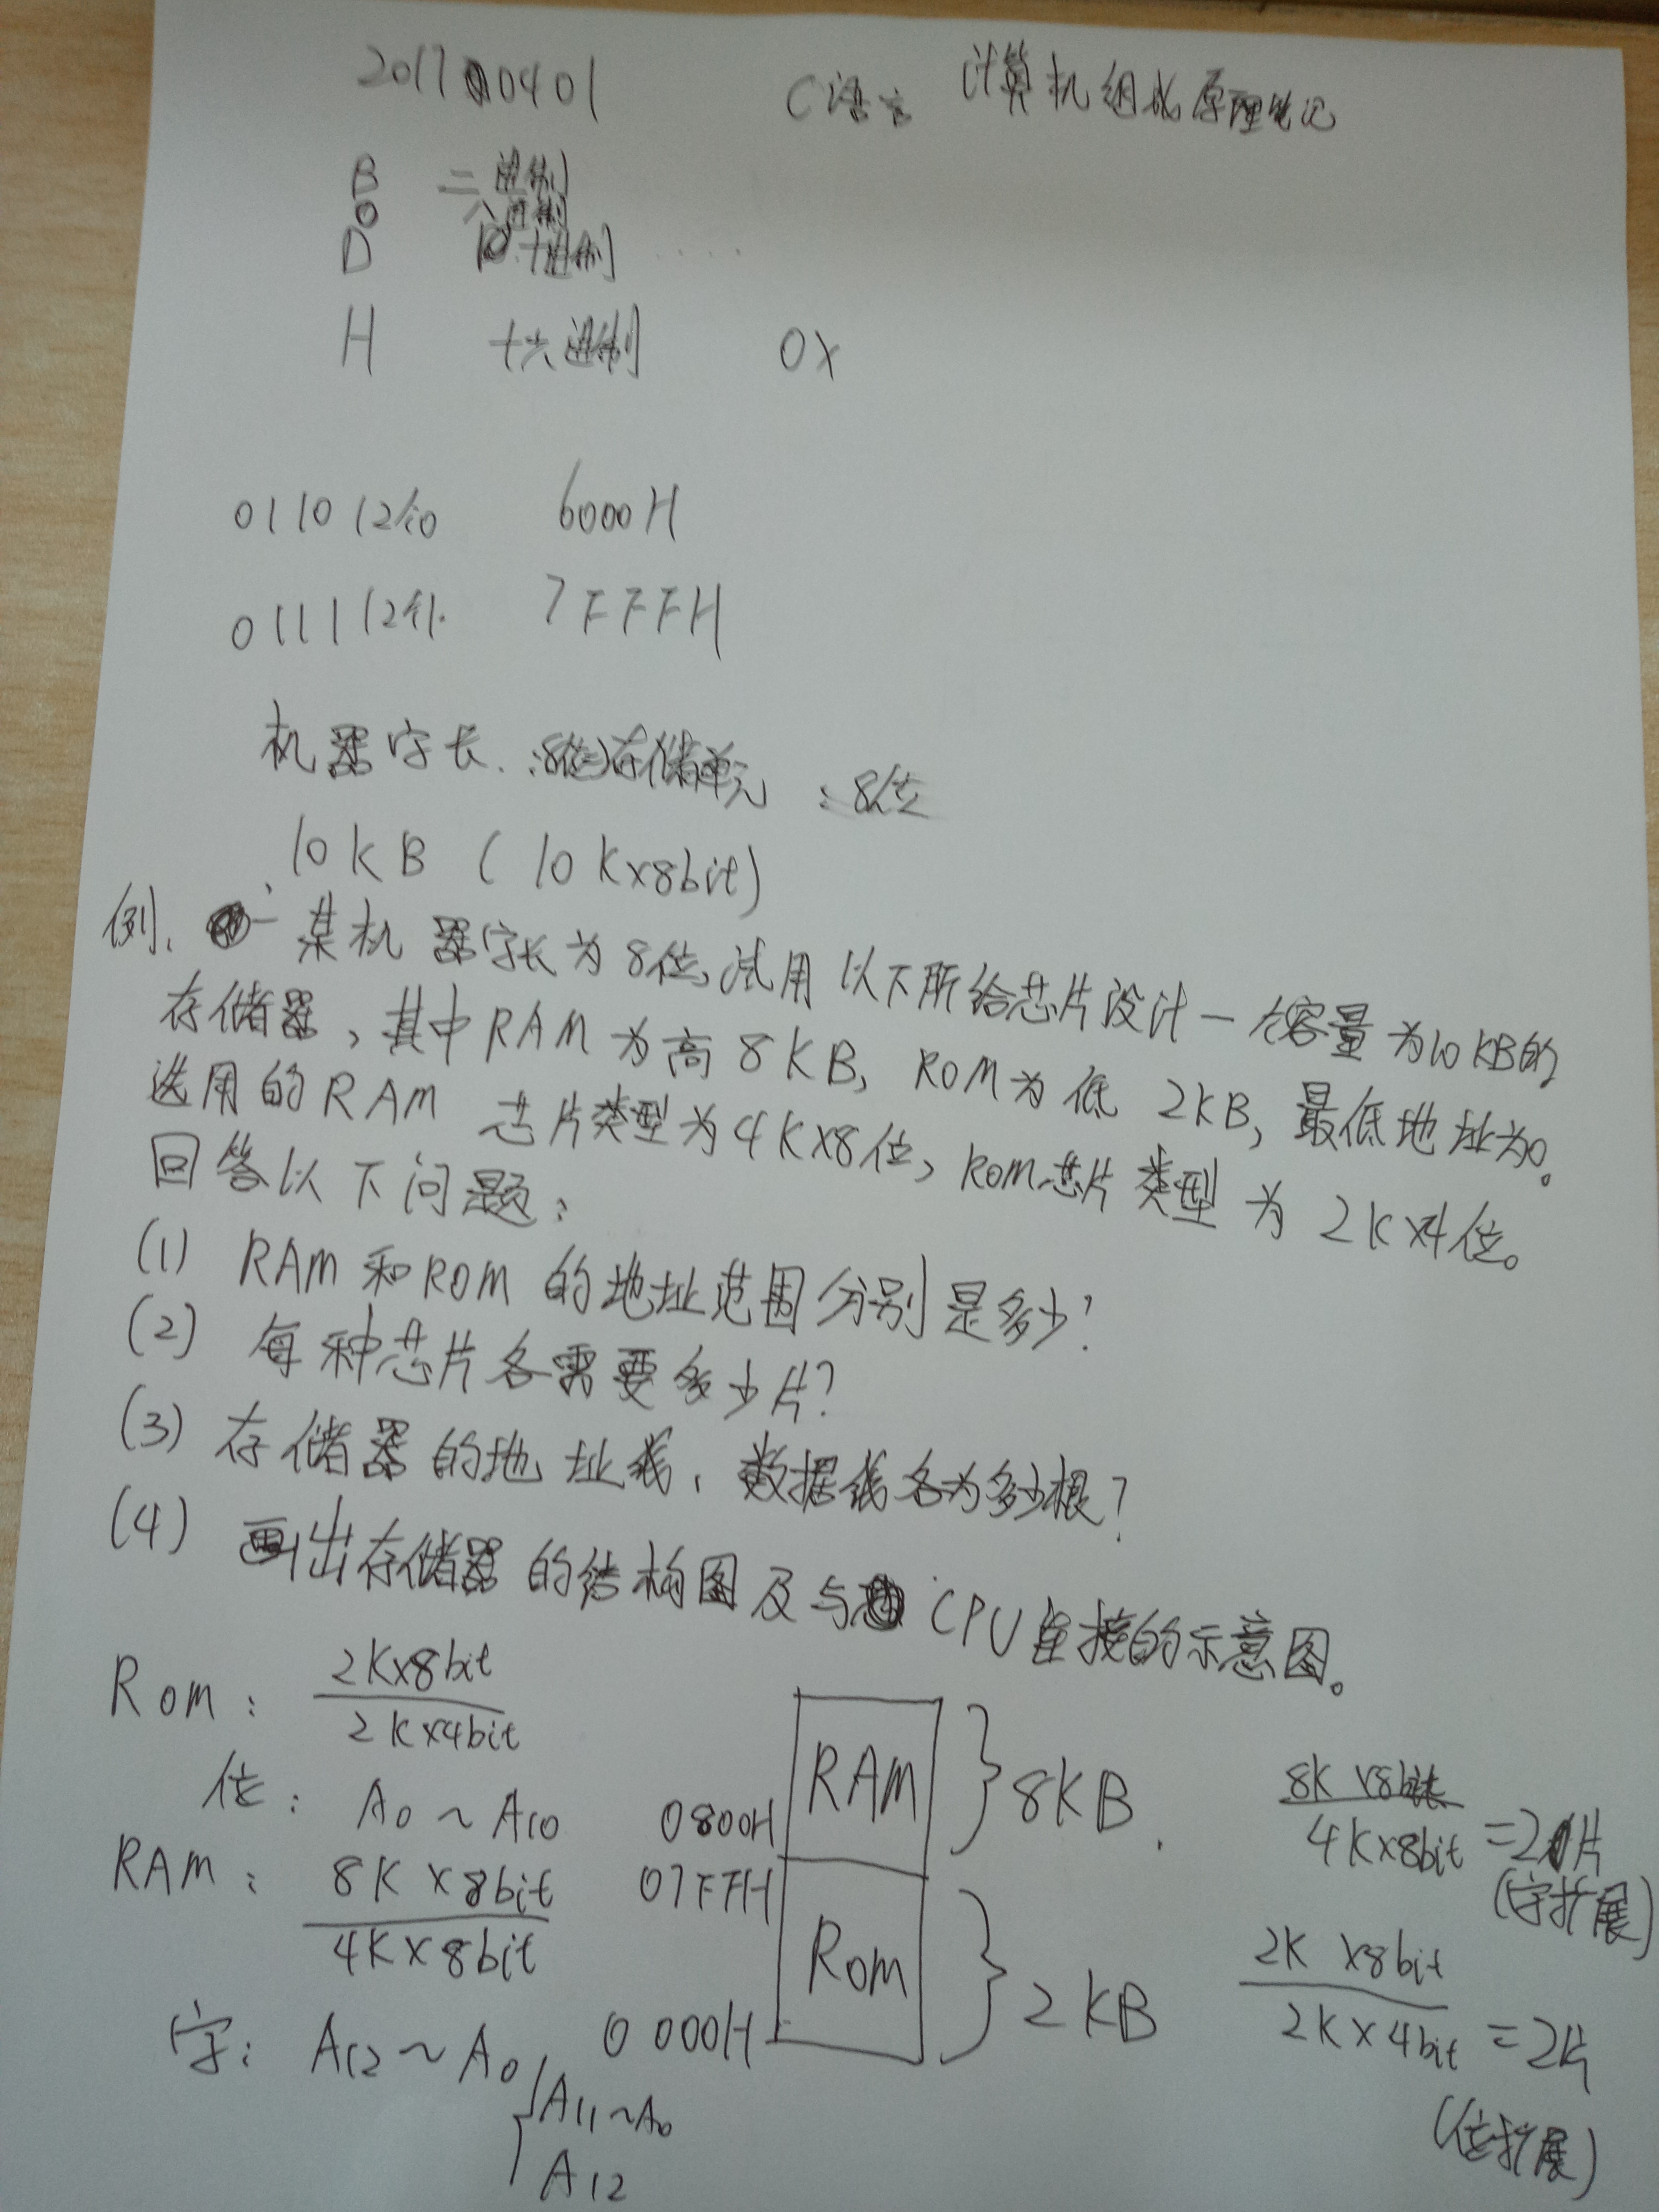 20170401 C语言 计算机组成原理笔记
B 二进制
O 八进制
D 十进制 ....
H 十六进制 0X
0110 12个0 6000H
0111 12个1. 7FFFH
机器字长:8位 存储单元:8位
10KB (10K×8bit)
例、一某机器字长为8位,试用以下所给芯片设计一个容量为10KB的
存储器,其中RAM为高8KB,ROM为低2KB,最低地址为0。
选用的RAM芯片类型为4K×8位,ROM芯片类型为2K×4位。
回答以下问题:
(1) RAM和ROM的地址范围分别是多少?
(2) 每种芯片各需要多少片?
(3) 存储器的地址线、数据线各为多少根?
(4) 画出存储器的结构图及与CPU连接的示意图。
Rom: 2K×8bit
2K×4bit
位: A0~A10
RAM: 8K×8bit
4K×8bit
字: A12~A0
A11~A0
A12
0800H
07FFH
0000H
RAM
Rom
8KB.
2KB
8K×8bit
4K×8bit =2片
(字扩展)
2K×8bit
2K×4bit =2片
(位扩展)